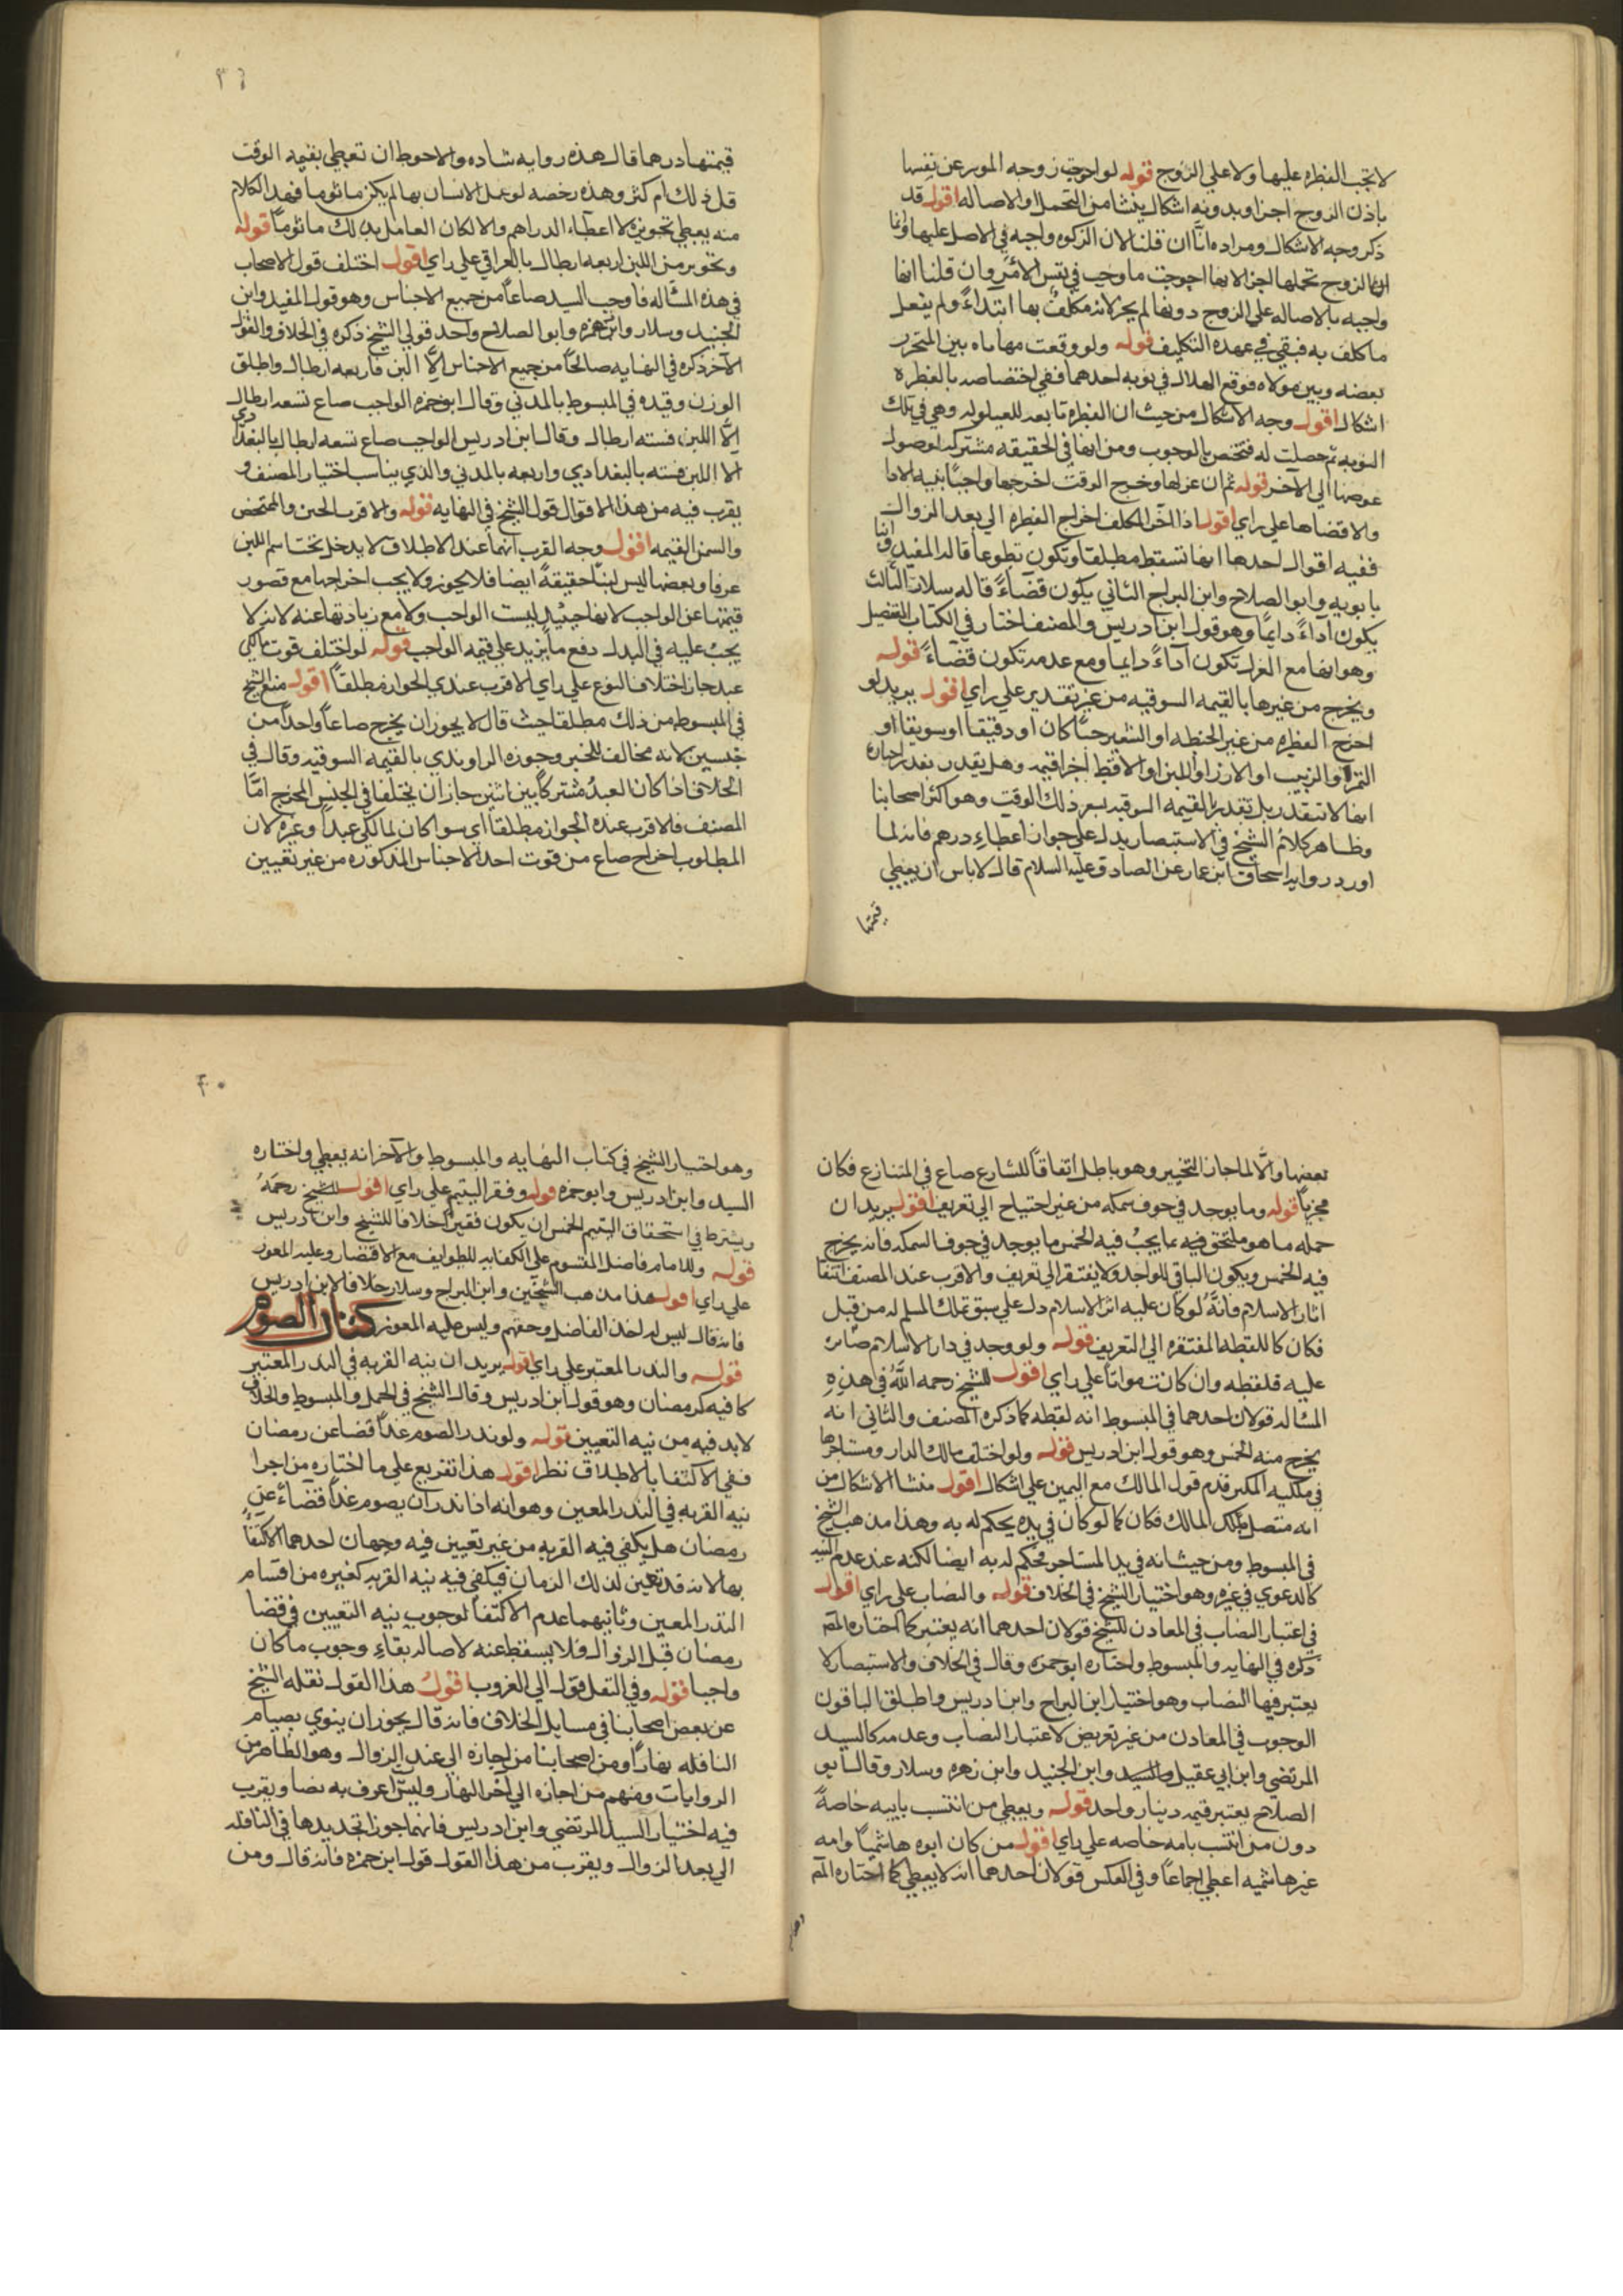 لا تجب الفطره عليها ولا على الزوج قوله لو اخرجت زوجه الموسر عن نفسها
باذن الزوج اجزا وبدونه اشكال ينشا من التحمل او الاصاله اقول قد
ذكر وجه الاشكال ومراده انا ان قلنا لان الزكوه واجبه في الاصل عليها وانما
الزوج تحملها اجزا لانها اخرجت ما وجب في نفس الامر وان قلنا انها
واجبه بالاصاله على الزوج دونها لم يجز لانه مكلف بها ابتداءً ولم يفعل
ما كلف به فبقي في عهده التكليف قوله ولو وقعت مهاياه بين المتحرر
بعضه وبين مولاه فوقع الهلال في نوبه احدهما ففي اختصاصه بالفطره
اشكال اقول وجه الاشكال من حيث ان الفطره تابعه للعيلوله وهي في تلك
النوبه حصلت له فتختص بالوجوب ومن انها في الحقيقه مشتركه لوصول
عوضها الى الآخر قوله ثم ان عزلها وخرج الوقت اخرجها واجبًا بنيه الادا
والا قضاها على راي اقول اذا اخر المكلف اخراج الفطره الى بعد الزوال
ففيه اقوال احدها انها تسقط مطلقا وتكون تطوعا قاله المفيد وابنا
بابويه وابو الصلاح وابن البراج الثاني يكون قضاءً قاله سلار الثالث
يكون اداءً دايمًا وهو قول ابن ادريس والمصنف اختار في الكتاب التفصيل
وهو انها مع العزل تكون آداءً دايما ومع عدمه تكون قضاءً قوله
ويخرج من غيرها بالقيمه السوقيه من غير تقدير على راي اقول يريد لو
اخرج الفطره من غير الحنطه او الشعير حبًا كان او دقيقا او سويقا او
التمر او الزبيب او الارز او اللبن او الاقط اخرا قيمه وهل يقدر بقدر اختاره
انها لا تتقدر بل تقدر بالقيمه السوقيه بسعر ذلك الوقت وهو اكثر اصحابنا
وظاهر كلام الشيخ في الاستبصار يدل على جواز اعطاء درهم فانه لما
اورد روايه اسحاق ابن عمار عن الصادق عليه السلام قال لا باس ان يعطي
قيمتها
٣٦
قيمتها درهما قال هذه روايه شاده والاحوط ان تعطي بقيمه الوقت
قل ذلك ام كثر وهذه رخصه لو عمل الانسان بها لم يكن ماثوما فهذا الكلام
منه يعطي تجويز لا اعطاء الدراهم والا لكان العامل بذلك ماثوماً قوله
وتجويز من اللبن اربعه ارطال بالعراقي على راي اقول اختلف قول الاصحاب
في هذه المسئاله فاوجب السيد صاعاً من جميع الاجناس وهو قول المفيد وابن
الجنيد وسلار وابن حمزه وابو الصلاح واحد قولي الشيخ ذكره في الخلاف والقول
الآخر ذكره في النهايه صاعًا من جميع الاجناس الَّا اللبن فاربعه ارطال واطلق
الوزن وقيده في المبسوط بالمدني وقال ابو حمزه الواجب صاع تسعه ارطال
الَّا اللبن فسته ارطال وقال ابن ادريس الواجب صاع تسعه ارطال بالبغدادي
الا اللبن فسته بالبغدادي واربعه بالمدني والذي يناسب اختيار المصنف و
يقرب فيه من هذا الاقوال قول الشيخ في النهايه قوله والاقرب الجبن والمخيض
والسمن القيمه اقول وجه القرب انهما عند الاطلاق لا يدخل تحت اسم اللبن
عرفا وبعضها ليس لبنًا حقيقهً ايضا فلا يجوز ولا يجب اخراجها مع قصور
قيمتها عن الواجب لانها حينيذ ليست الواجب ولا مع زيادتها عنه لانه لا
يجب عليه في البدل دفع ما يزيد على قيمه الواجب قوله لو اختلف قوت مالكي
عبد جاز اختلاف النوع على راي الاقرب عندي الجواز مطلقاً اقول منع الشيخ
في المبسوط من ذلك مطلقا حيث قال لا يجوز ان يخرج صاعاً واحداً من
جنسين لانه مخالف للخبر وجوزه الراوندي بالقيمه السوقيه وقال في
الخلاف اذا كان العبدُ مشتركًا بين اثنين جاز ان يختلفا في الجنس المخرج امَّا
المصنف فالاقرب عنده الجواز مطلقا اي سوا كان لمالكي عبدا وغيره لان
المطلوب اخراج صاع من قوت احد الاجناس المذكوره من غير تعيين
بعضها والَّا لما جاز التخيير وهو باطل اتفاقاً للشارع صاع في المتنازع فكان
مجزياً قوله وما يوجد في جوف سمكه من غير احتياج الى تعريف اقول يريد ان
حمله ما هو ملتحق فيه بما يجبُ فيه الخمس ما يوجد في جوف السمكه فانه يخرج
فيه الخمس ويكون الباقي للواجد ولا يفتقر الى تعريف والاقرب عند المصنف انتفا
اثار الاسلام فانَّهُ لو كان عليه اثر الاسلام دل على سبق تملك المسلم له من قبل
فكان كاللقطه المفتقره الى التعريف قوله ولو وجد في دار الاسلام صايره
عليه فلقطه وان كانت مواتاً على راي اقول للشيخ رحمه اللَّهُ في هذه
المساله قولان احدهما في المبسوط انه لقطه كما ذكره المصنف والثاني انه
يخرج منه الخمس وهو قول ابن ادريس قوله ولو اختلف مالك الدار ومستاجرها
في ملكيه المكنز قدم قول المالك مع اليمين على اشكال اقول منشا الاشكال من
انه متصل بملك المالك فكان كما لو كان في يده يحكم له به وهذا مذهب الشيخ
في المبسوط ومن حيث انه في يد المستاجر فحكم له به ايضا لكنه عند عدم البينه
كالدعوي في غيره وهو اختيار الشيخ في الخلاف قوله والنصاب على راي اقول
في اعتبار النصاب في المعادن للشيخ قولان احدهما انه يعتبر كما اختاره المصَ
ذكره في النهايه والمبسوط واختاره ابو حمزه وقال في الخلاف والاستبصار لا
يعتبر فيها النصاب وهو اختيار ابن البراج وابن ادريس واطلق الباقون
الوجوب في المعادن من غير تعريض لاعتبار النصاب وعدمه كالسيد
المرتضي وابن ابي عقيل والسيد وابن الجنيد وابن زهره وسلار وقال ابو
الصلاح يعتبر قيمه دينار واحد قوله ويعطي من انتسب بابيه خاصةً
دون من انتسب بامه خاصه على راي اقول من كان ابوه هاشميًا وامه
غير هاشميه اعطي اجماعاً وفي العكس قولان احدهما انه لا يعطي كما اختاره المصَ
٣٠
وهو اختيار الشيخ في كتاب النهايه والمبسوط والآخر انه يعطي واختاره
السيد وابن ادريس وابو حمزه قوله وفقر اليتيم على راي اقول للشيخ رحمهُ
ويشترط في استحقاق اليتيم الخمس ان يكون فقيراً خلافا للشيخ وابن ادريس
قوله وللامام فاضل المقسوم على الكفايه للطوايف مع الاقتصار وعليه المعوز
على راي اقول هذا مذهب الشيخين وابن البراج وسلار خلافا لابن ادريس
فانه قال ليس له اخذ الفاضل وحقهم وليس عليه المعوز كتاب الصوم
قوله والنذر المعتبر على راي اقول يريد ان نيه القربه في النذر المعتبر
كافيه كرمضان وهو قول ابن ادريس وقال الشيخ في الجمل والمبسوط والخلاف
لابد فيه من نيه التعيين قوله ولو نذر الصوم غداً قضا عن رمضان
ففي الاكتفا بالاطلاق نظر اقول هذا تفريع على ما اختاره من اجزا
نيه القربه في النذر المعين وهو انه اذا نذر ان يصوم غداً قضاءً عن
رمضان هل يكفي فيه القربه من غير تعيين فيه وجهان احدهما الاكتفاً
بها لانه قد تعين لذلك الزمان فيكفي فيه نيه القربه كغيره من اقسام
النذر المعين وثانيهما عدم الاكتفا لوجوب نيه التعيين في قضا
رمضان قبل الزوال فلا يسقط عنه لاصاله بقاء وجوب ما كان
واجبا قوله وفي النفل قول الى الغروب اقول هذا القول نقله الشيخ
عن بعض اصحابنا في مسايل الخلاف فانه قال يجوز ان ينوي بصيام
النافله نهارًا ومن اصحابنا من اجازه الى عند الزوال وهو الظاهر من
الروايات ومنهم من اجازه الى آخر النهار وليس اعرف به نصا ويقرب
فيه اختيار السيد المرتضي وابن ادريس فانهما جوزا تجديدها في النافله
الى بعد الزوال ويقرب من هذا القول قول ابن حمزه فانه قال ومن